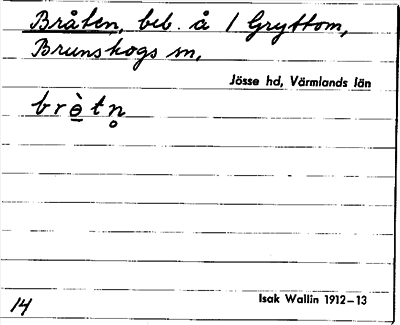 Bråten, beb. å 1 Gryttom,
Brunskogs sn,
Jösse hd, Värmlands län
brè̲tn̥
14
Isak Wallin 1912–13